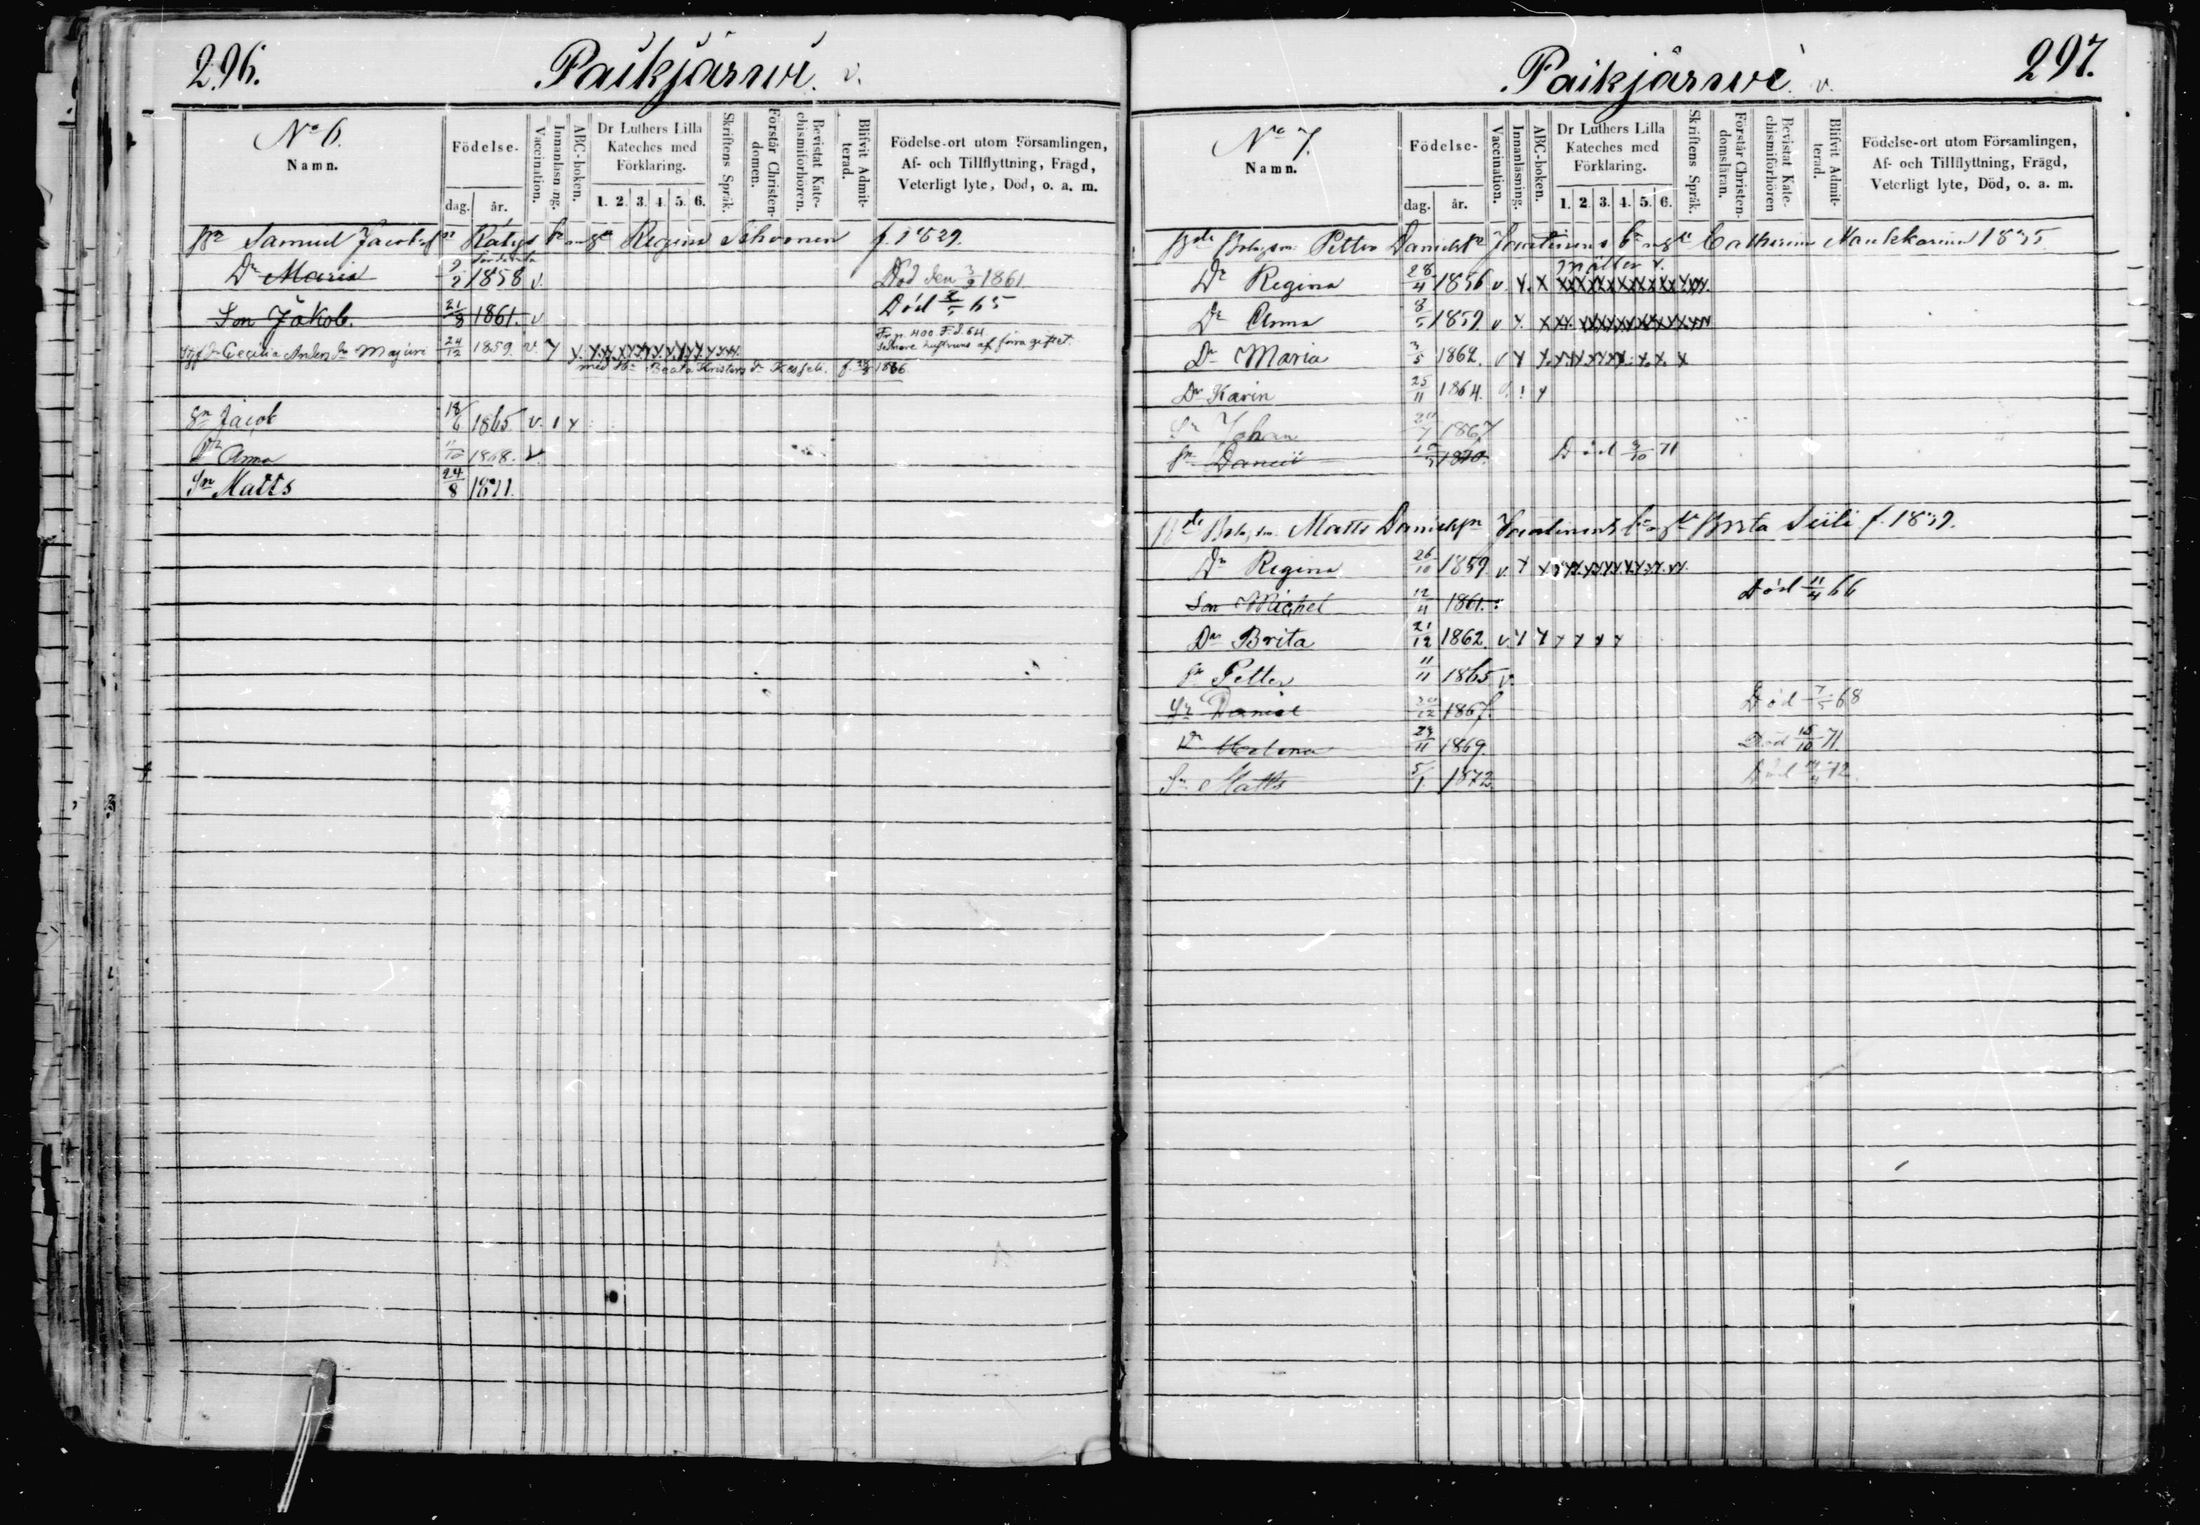 296.
Paikjärwi. v.
No 6.
Namn.
Födelse-
dag. år.
Vaccination.
Innanläsning.
ABC-boken.
Dr Luthers Lilla Kateches med Förklaring.
1. 2. 3. 4. 5. 6.
Skriftens Språk.
Förstår Christendomen.
Bevistat Katechismiförhören.
Blifvit Admitterad.
Födelse-ort utom Församlingen,
Af- och Tillflyttning, Frägd,
Veterligt lyte, Död, o. a. m.
Samuel Jacobsn Regina f. 1829.
Dr Maria 1858 v. Död den 3/2 1861.
Son Jakob. 21/8 1861. v Död 65
Cecilia Anders dr Majuri 24/12 1859. v. af förra giftet
med Hu Beata Kristers dr f. 1836
Sn Jacob 18/6 1865 v. 1 x
Dr Anna 11/10 1868. v.
Sn Matts 24/8 1871.
297.
Paikjärwi v.
No 7.
Namn.
Födelse-
dag. år.
Vaccination.
Innanläsning.
ABC-boken.
Dr Luthers Lilla Kateches med Förklaring.
1. 2. 3. 4. 5. 6.
Skriftens Språk.
Förstår Christendomsläran.
Bevistat Katechismiförhören
Blifvit Admitterad.
Födelse-ort utom Församlingen,
Af- och Tillflyttning, Frägd,
Veterligt lyte, Död, o. a. m.
Petter Danielsn Catharina Naukkarinen 1835
Dr Regina 28/4 1856 v. x. x
Dr Anna 8/5 1859 v x.
Dr Maria 3/5 1862. v x
Dr Karin 25/11 1864. v. 1 x
Sn Johan 1867
Sn Daniel 1870. Död 3/10 71
Matts Danielsn Brita Siili f. 1839.
Dr Regina 26/10 1859. v. x
Son Michel 12/11 1861. Död 11/4 66
Dr Brita 21/12 1862. v. x x x x x x
Sn Petter 11/11 1865 v.
Sn Daniel 1867. Död 7/5 68
Dr Helena 1869 Död 15/10 71.
Sn Matts 5/1. 1872 Död 72.